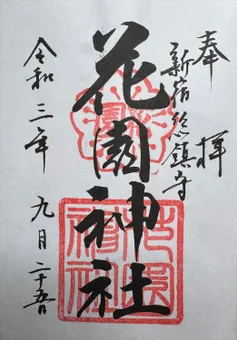 奉拝
新宿総鎮守
花園神社
令和三年 九月二十五日
花園神社